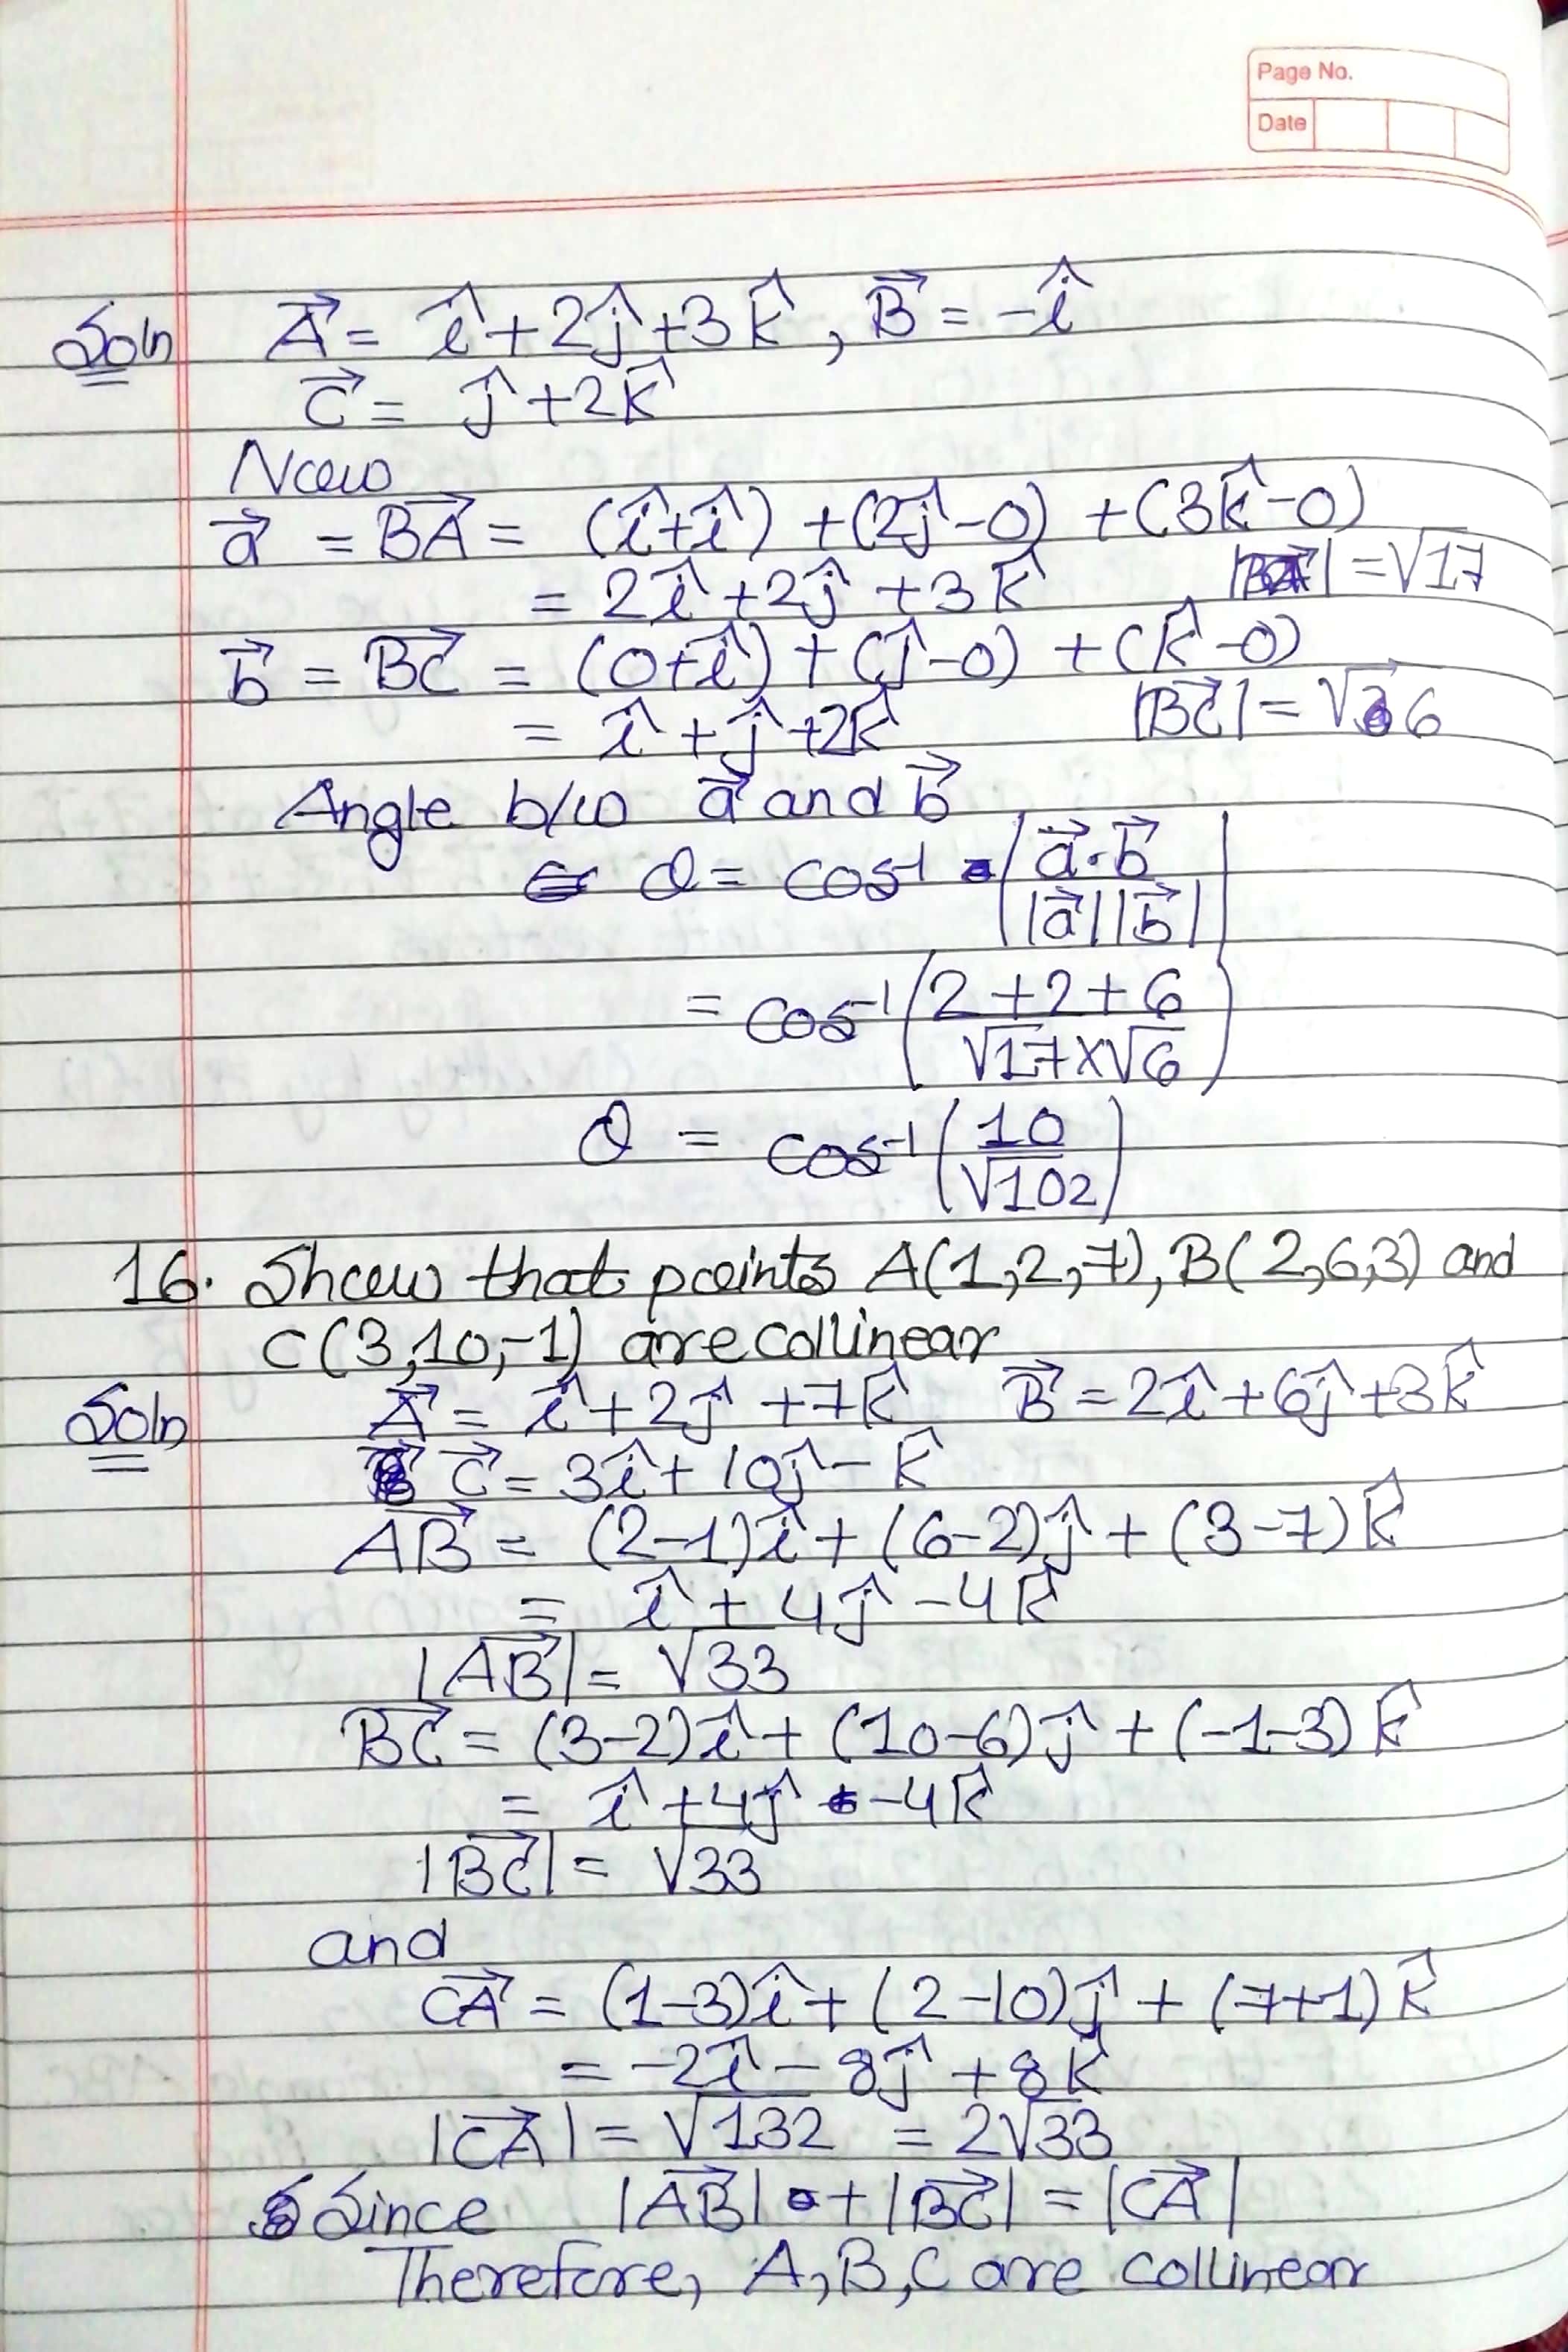 Page No.
Date
Soln A⃗ = î + 2ĵ + 3k̂ , B⃗ = -î
C⃗ = ĵ + 2k̂
Now
a⃗ = BA⃗ = (î+î) + (2ĵ-0) + (3k̂-0)
= 2î + 2ĵ + 3k̂ |BA⃗| = √17
b⃗ = BC⃗ = (0+î) + (ĵ-0) + (k̂-0)
= î + ĵ + 2k̂ |BC⃗| = √6
Angle b/w a⃗ and b⃗
θ = cos⁻¹ |a⃗·b⃗ / |a⃗||b⃗||
= cos⁻¹ (2+2+6 / √17×√6)
θ = cos⁻¹ (10 / √102)
16. Show that points A(1,2,7), B(2,6,3) and
C(3,10,-1) are collinear
Soln A⃗ = î + 2ĵ + 7k̂ B⃗ = 2î + 6ĵ + 3k̂
C⃗ = 3î + 10ĵ - k̂
AB⃗ = (2-1)î + (6-2)ĵ + (3-7)k̂
= î + 4ĵ - 4k̂
|AB⃗| = √33
BC⃗ = (3-2)î + (10-6)ĵ + (-1-3)k̂
= î + 4ĵ - 4k̂
|BC⃗| = √33
and
CA⃗ = (1-3)î + (2-10)ĵ + (7+1)k̂
= -2î - 8ĵ + 8k̂
|CA⃗| = √132 = 2√33
Since |AB⃗| + |BC⃗| = |CA⃗|
Therefore, A, B, C are collinear